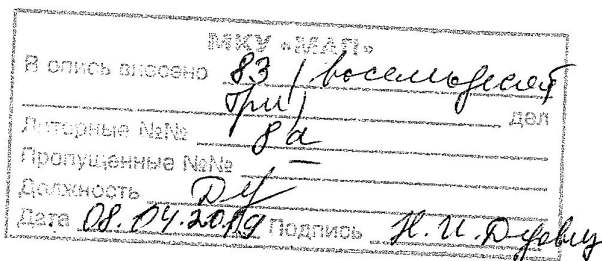 МКУ «МАП»
В опись внесено 83 (восемьдесят
три) дел
Литерные №№ 8а
Пропущенные №№ —
Должность
Дата 08.04.2019 Подпись Н.И.